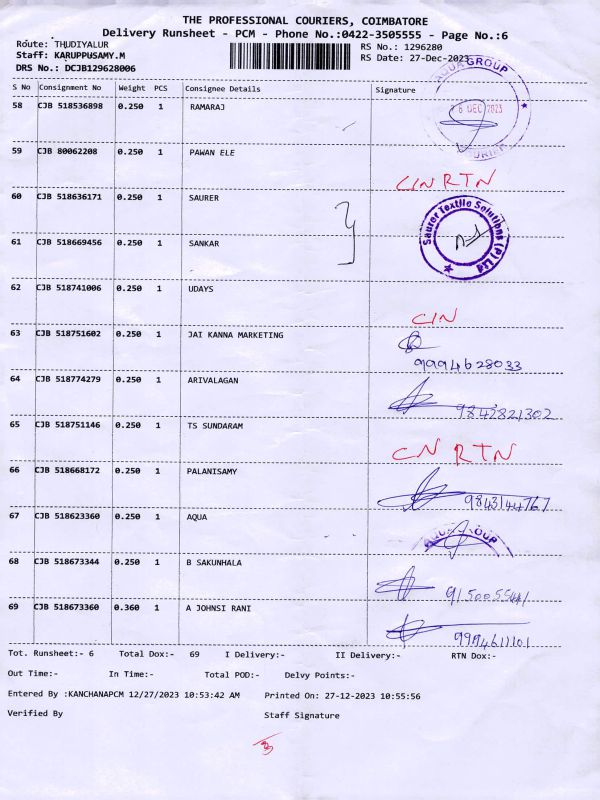 THE PROFESSIONAL COURIERS, COIMBATORE
Delivery Runsheet - PCM - Phone No.:0422-3505555 - Page No.:6
Route: THUDIYALUR
Staff: KARUPPUSAMY.M
DRS No.: DCJB129628006
RS No.: 1296280
RS Date: 27-Dec-2023
S No Consignment No Weight PCS Consignee Details Signature
58 CJB 518536898 0.250 1 RAMARAJ
AQUA GROUP
26 DEC 2023
59 CJB 80062208 0.250 1 PAWAN ELE
CIN RTN
60 CJB 518636171 0.250 1 SAURER
Saurer Textile Solutions (P) Ltd
61 CJB 518669456 0.250 1 SANKAR
62 CJB 518741006 0.250 1 UDAYS
CIN
63 CJB 518751602 0.250 1 JAI KANNA MARKETING
9994628033
64 CJB 518774279 0.250 1 ARIVALAGAN
9842821302
65 CJB 518751146 0.250 1 TS SUNDARAM
CN RTN
66 CJB 518668172 0.250 1 PALANISAMY
9843144767
67 CJB 518623360 0.250 1 AQUA
AQUA GROUP
68 CJB 518673344 0.250 1 B SAKUNHALA
69 CJB 518673360 0.360 1 A JOHNSI RANI
9994611101
Tot. Runsheet:- 6 Total Dox:- 69 I Delivery:- II Delivery:- RTN Dox:-
Out Time:- In Time:- Total POD:- Delvy Points:-
Entered By :KANCHANAPCM 12/27/2023 10:53:42 AM Printed On: 27-12-2023 10:55:56
Verified By Staff Signature